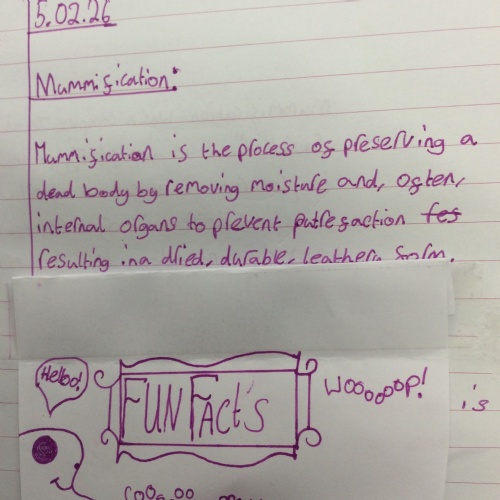 5.02.26
Mummification:
Mummification is the process of preserving a
dead body by removing moisture and, often,
internal organs to prevent putrefaction fes
resulting in a dried, durable, leathery form.
Hello!
FUN FACT'S
WOOOOOOP!
is